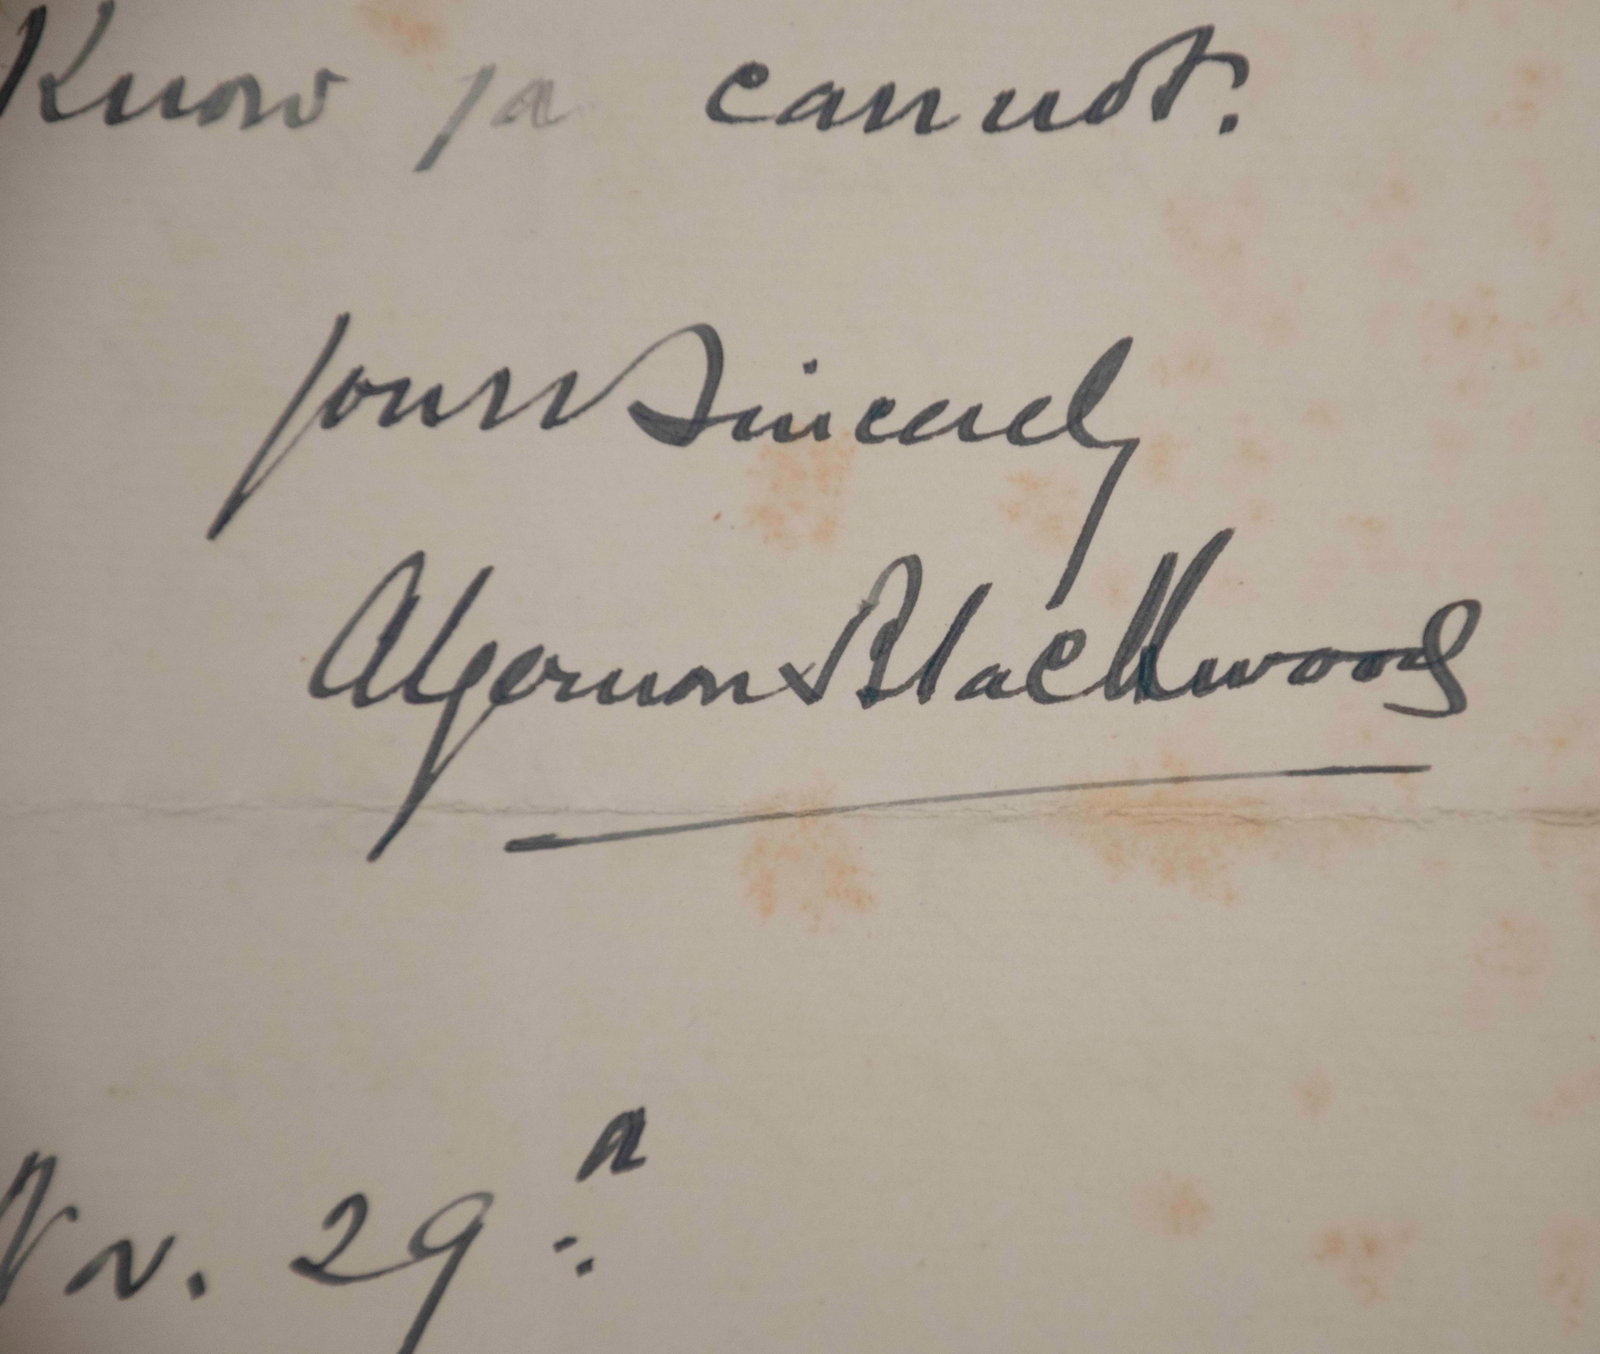 Know you cannot.
Yours sincerely
Algernon Blackwood
Nov. 29th